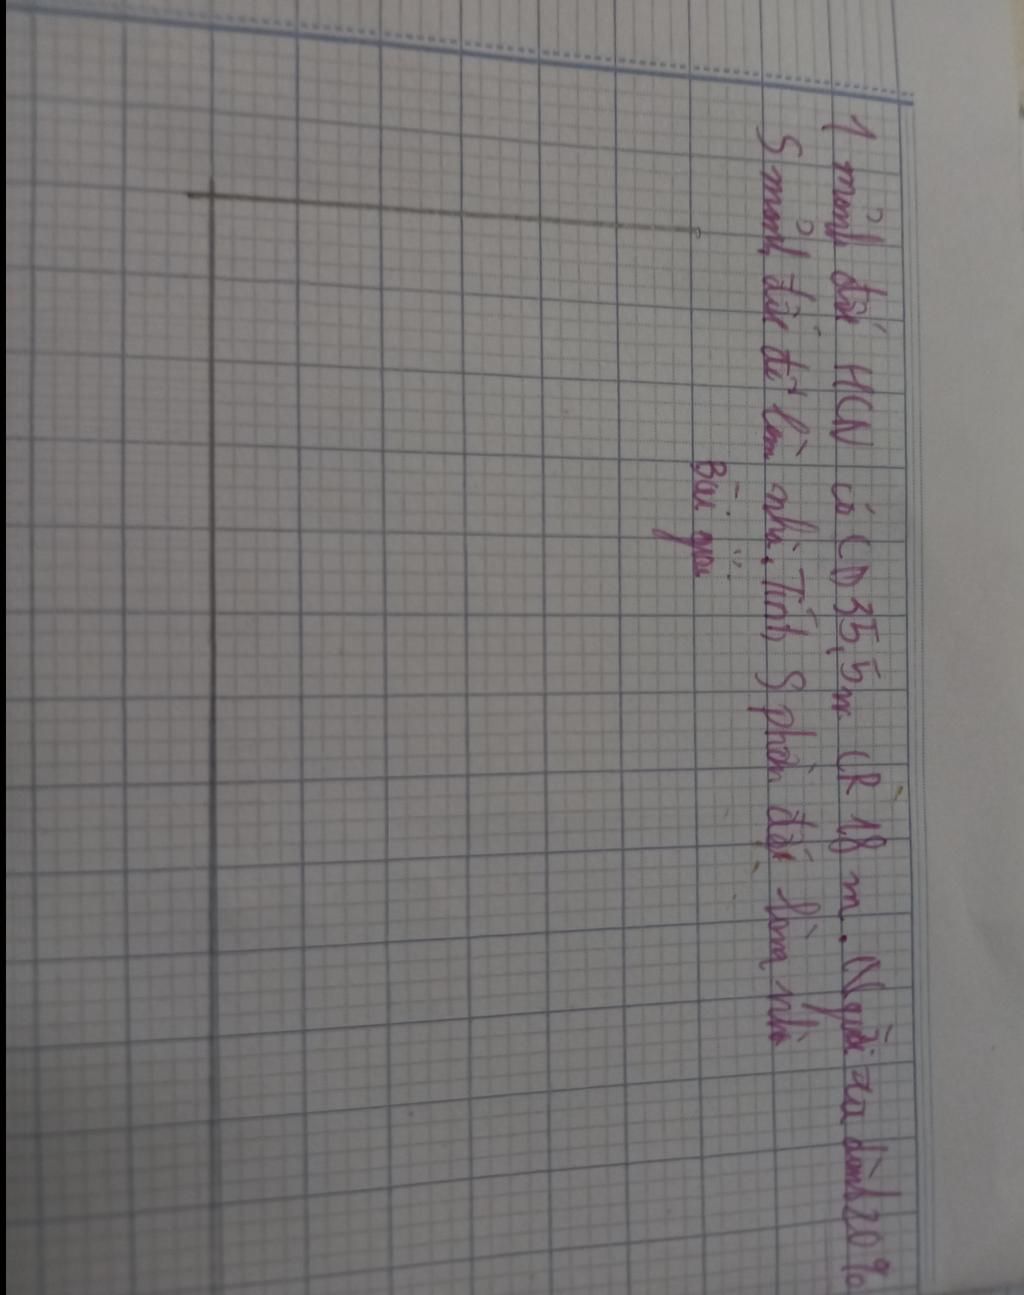 1 mảnh đất HCN có CD 35,5m CR 18 m. Người ta dành 20%
S mảnh đất để làm nhà. Tính S phần đất làm nhà
Bài giải